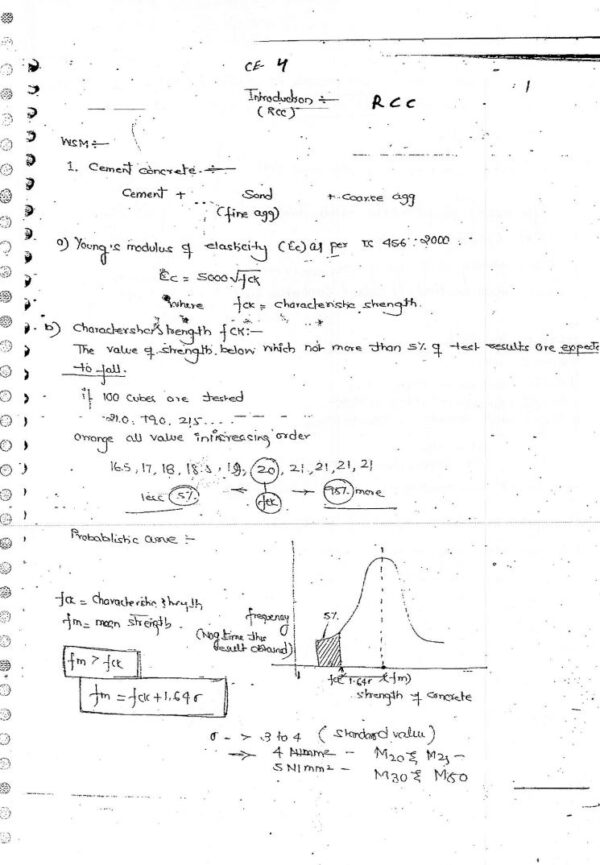 CE- 4
1
Introduction :-
(RCC)
RCC
WSM :-
1. Cement concrete. :-
Cement + Sand + coarse agg
(fine agg)
a) Young's modulus of elasticity (Ec) as per IS 456 : 2000.
Ec = 5000√fck
where fck = characteristic strength.
b) Characterstic strength fck :-
The value of strength below which not more than 5% of test results are expecte
to fall.
if 100 cubes are tested
21.0, 19.0, 21.5....
arrange all value in increasing order
16.5, 17, 18, 18.5, 19, 20, 21, 21, 21, 21
less 5% ← fck → 95% more
Probablistic curve :-
fck = Characteristic strength
fm = mean strength.
fm > fck
fm = fck + 1.64σ
frequency
(No of time this
result obtained)
5%
fck 1.64σ (fm)
strength of concrete
σ - > 3 to 4 (standard value)
⇒ 4 N/mm2 - M20 & M25 -
5 N/mm2 - M30 & M50